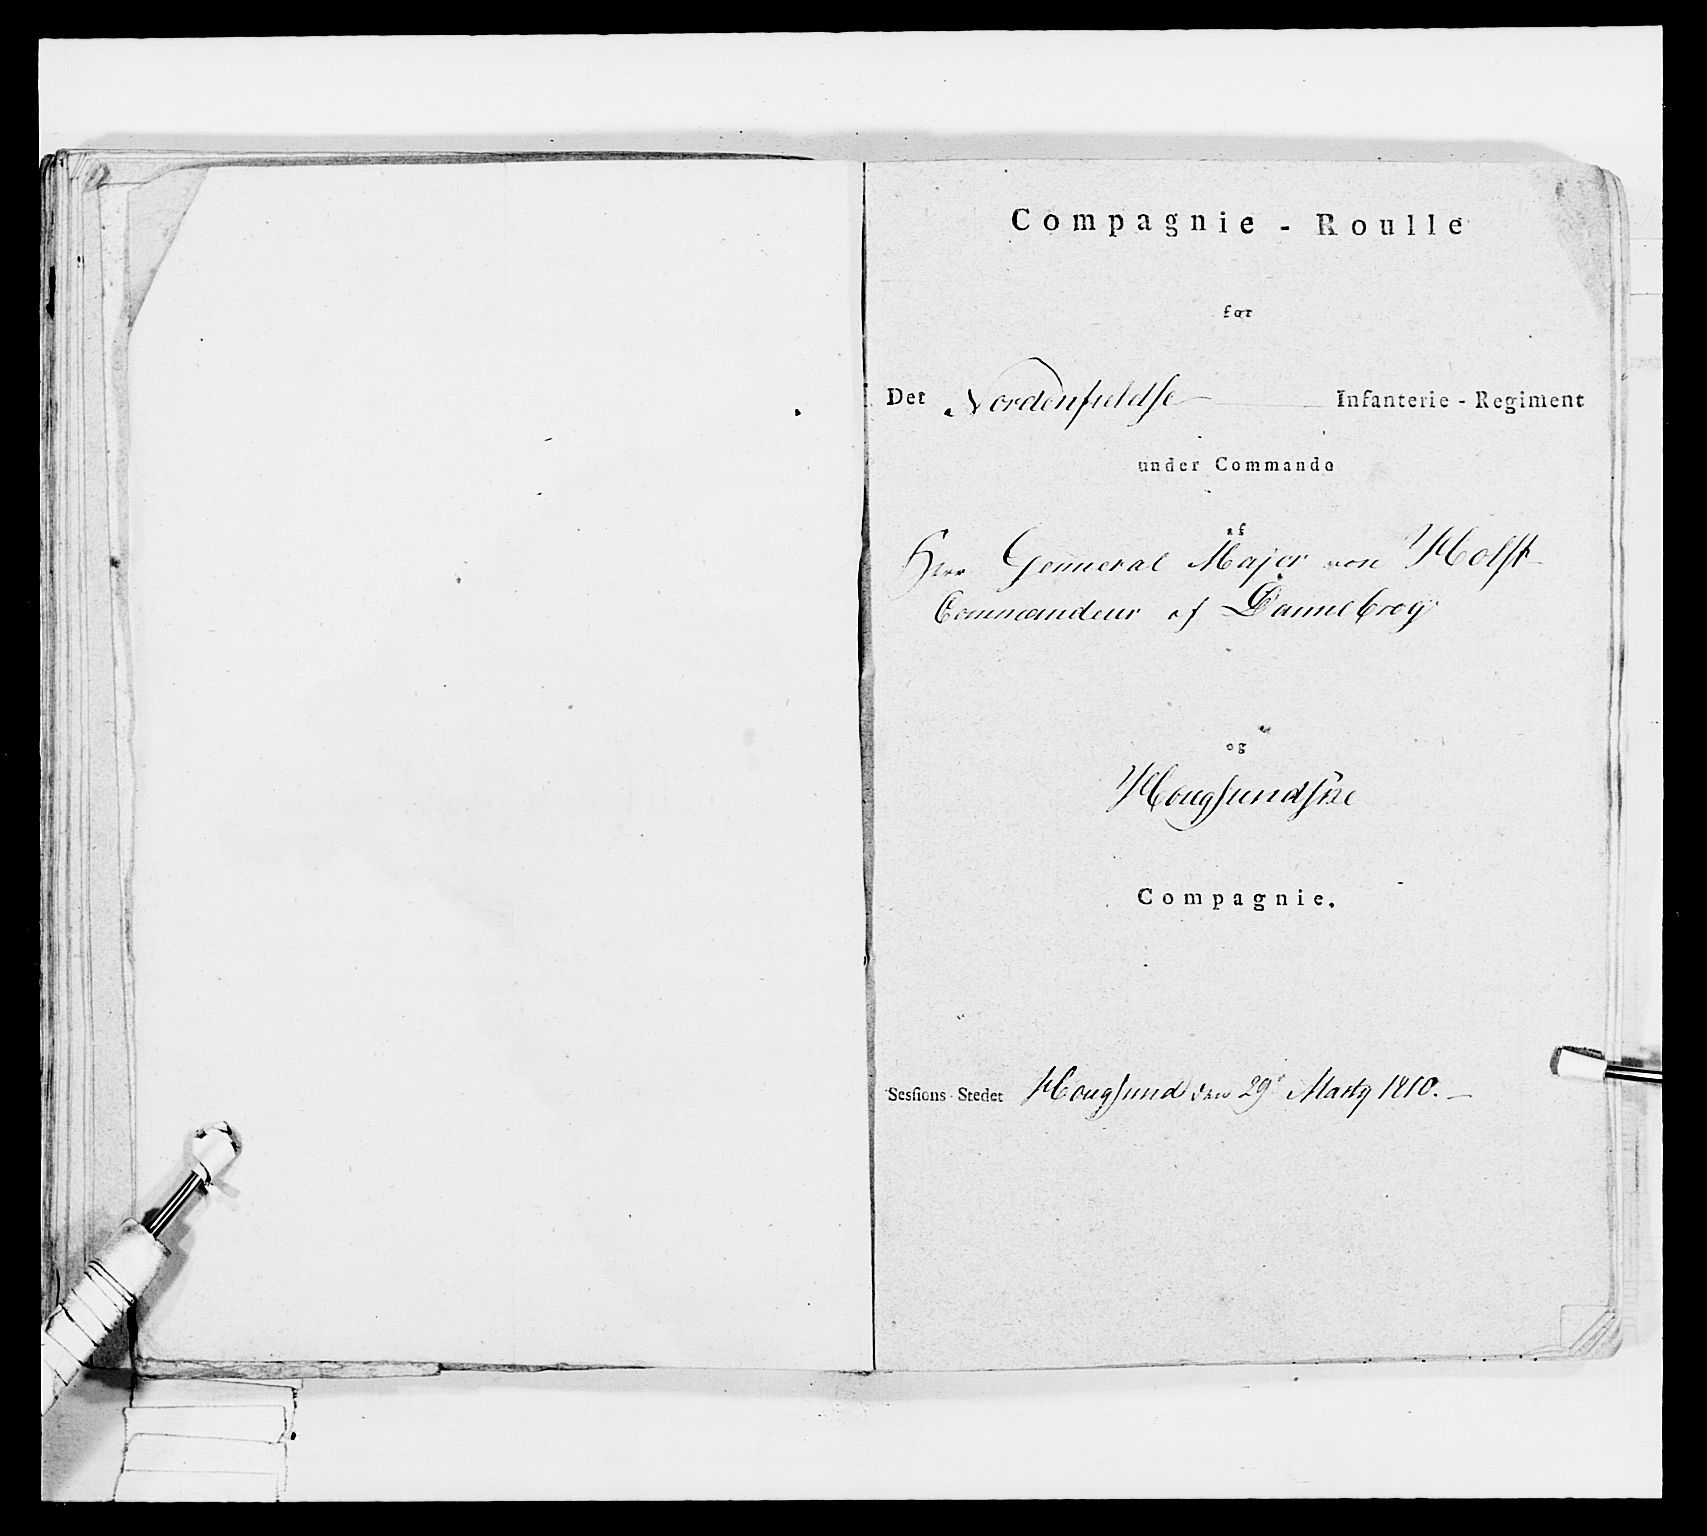 Compagnie - Roulle
for
Det Nordenfieldske Infanterie - Regiment
under Commando
af
Herr Genneral Major von Holst
Commandeur af Dannebrog
og
Hougsundske
Compagnie.
Sesſions-Stedet Hougsund den 29d Marty 1810.